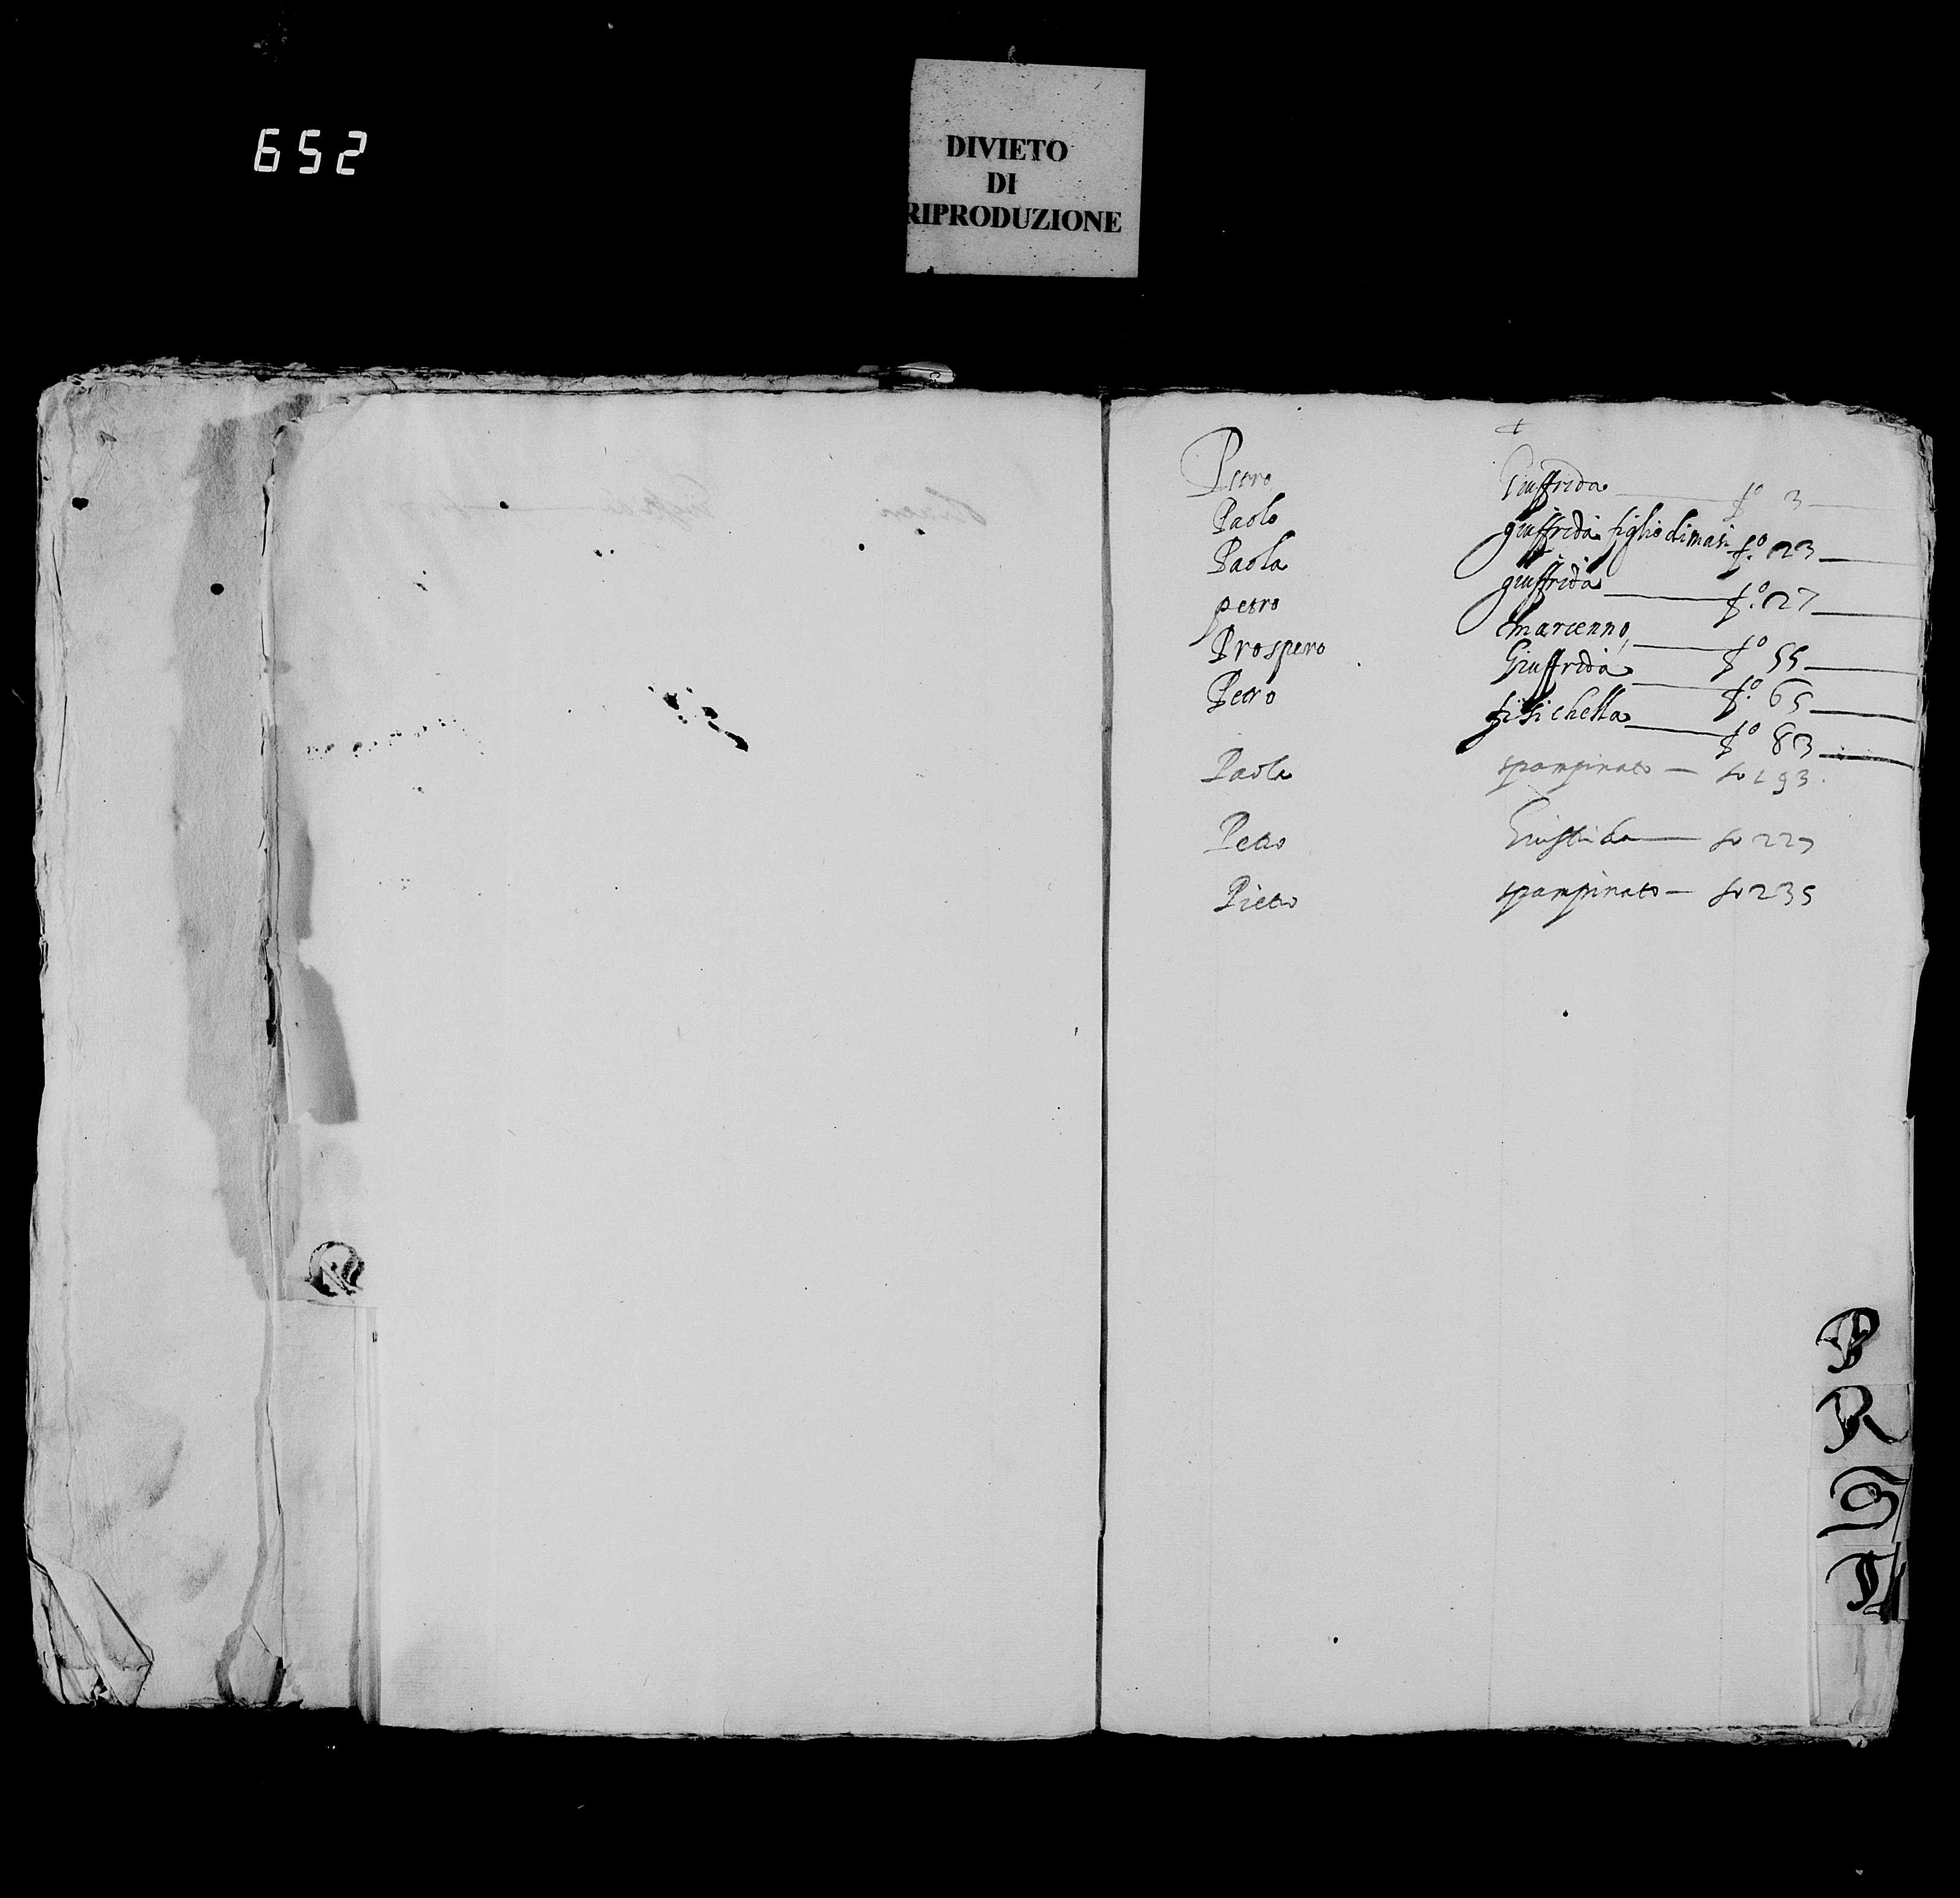 652
DIVIETO
DI
RIPRODUZIONE
+
Pietro Giuffrida fo 3
Paolo giuffrida figlio di masi fo 23
Paola giuffrida fo 27
petro marcenno fo 55
Prospero Giuffrida fo 65
Petro fisichella fo 83
Paola spampinato fo 193
Petro Giuffrida fo 227
Pietro spampinato fo 235
P
R
S
T